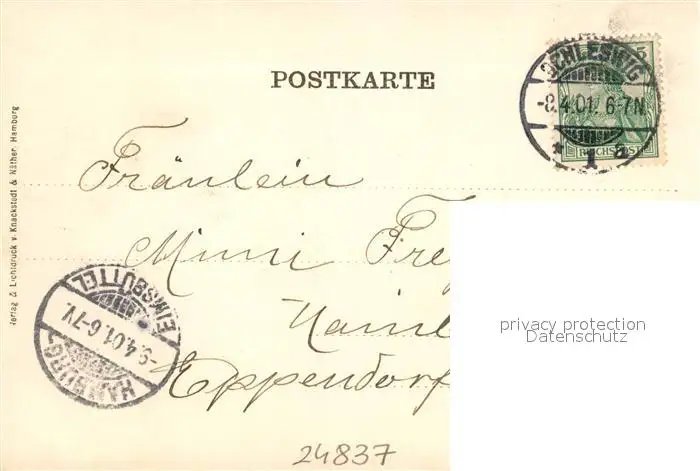 POSTKARTE
5
SCHLESWIG
-8.4.01. 6-7N
* 1 a
REICHSPOST
Verlag & Lichtdruck v. Knackstedt & Näther, Hamburg
Fräulein
Mimi Fre
privacy protection
Datenschutz
Eppendorf
EIMSBÜTTEL
-9.4.01. 6-7V.
HAMBURG
24837